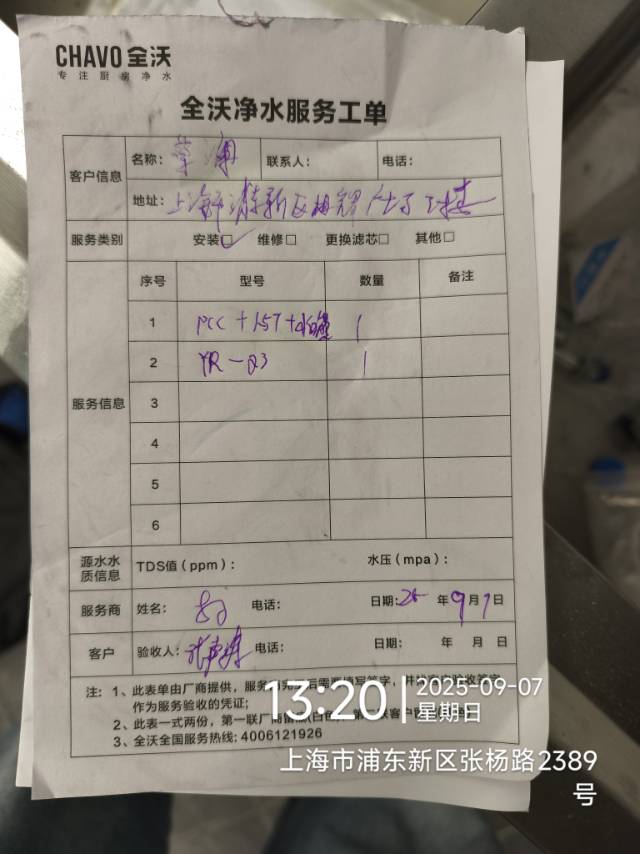 CHAVO 全沃
专注厨房净水
全沃净水服务工单
客户信息
名称： 联系人： 电话：
地址：上海市浦东新区
服务类别 安装☑ 维修□ 更换滤芯□ 其他□
服务信息
序号 型号 数量 备注
1 PCC + 15T + 1
2 YR-03 1
3
4
5
6
源水水质信息 TDS值（ppm）： 水压（mpa）：
服务商 姓名： 电话： 日期：25 年 9 月 7 日
客户 验收人： 电话： 日期： 年 月 日
注：1、此表单由厂商提供，服务
作为服务验收的凭证；
2、此表一式两份，第一联厂商
3、全沃全国服务热线：4006121926
13:20
2025-09-07
星期日
上海市浦东新区张杨路2389
号